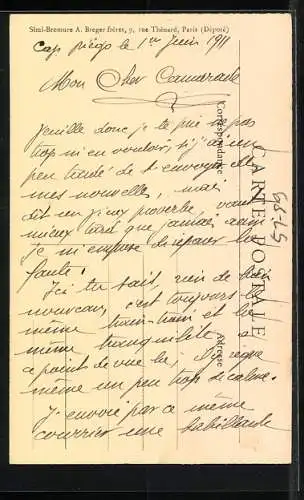 Simi-Bromure A. Breger frères, 9, rue Thénard, Paris (Déposé)
Cap Diégo le 1er Juin 1911
Mon Cher Camarade
Veuille donc je te prie ne pas
trop m'en vouloir, si j'ai un
peu tardé de t'envoyer de
mes nouvelles, mais
dit un vieux proverbe, vaut
mieux tard que jamais aussi
je m'empresse de réparer la
faute.
Ici tu sais, rien de bien
nouveau, c'est toujours le
même train-train et la
même tranquilité à
ce point de vue là, il règne
même un peu trop de calme.
J'envoie par ce même
courrier une babillarde
CARTE POSTALE
Correspondance
Adresse
57-85